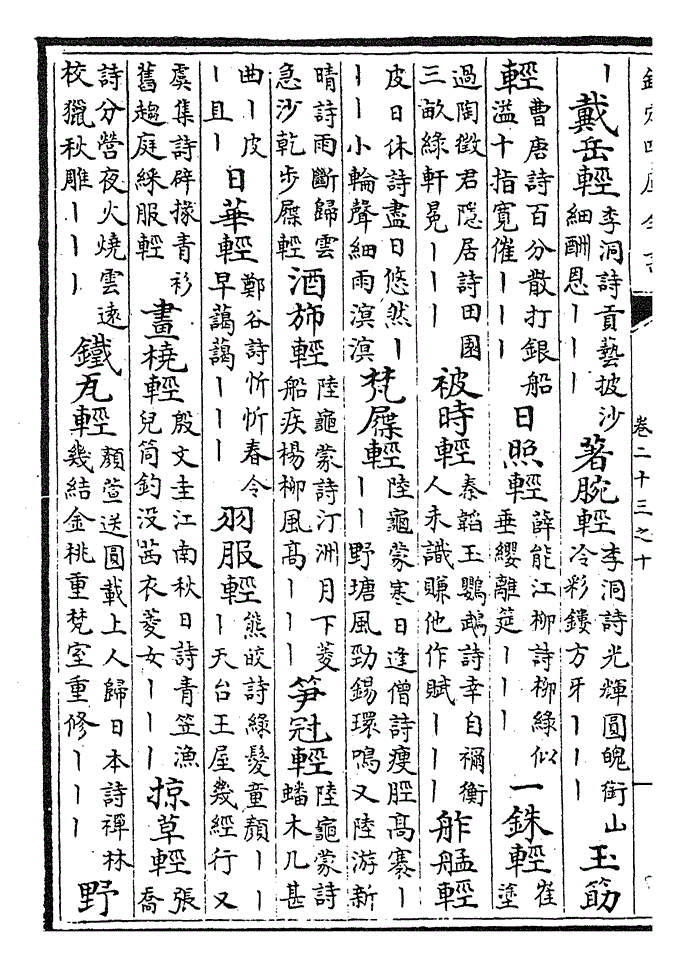 卷二十三之十
丨戴岳輕李洞詩貢藝披沙細酬恩丨丨丨著腕輕李洞詩光輝圓魄銜山冷彩鏤方牙丨丨丨玉筯
輕曹唐詩百分散打銀船溢十指寛催丨丨丨日照輕薛能江柳詩柳綠似垂纓離筵丨丨丨一銖輕崔塗
過陶徵君隱居詩田園三畝綠軒冕丨丨丨被時輕秦韜玉鸚鵡詩幸自禰衡人未識賺他作賦丨丨丨舴艋輕
皮日休詩盡日悠然丨丨丨小輪聲細雨溟溟梵屧輕陸龜蒙寒日逢僧詩瘦脛髙褰丨丨丨野塘風勁錫環鳴又陸游新
晴詩雨斷歸雲急沙乾步屧輕酒斾輕陸龜蒙詩汀洲月下菱船疾楊柳風髙丨丨丨笋冠輕陸龜蒙詩蟠木几甚
曲丨皮丨且日華輕鄭谷詩忻忻春令早藹藹丨丨丨羽服輕熊皎詩綠髮童顔丨丨丨天台王屋幾經行又
虞集詩辟掾青衫舊趨庭綵服輕畫橈輕殷文圭江南秋日詩青笠漁兒筒釣没茜衣菱女丨丨丨掠草輕張喬
詩分營夜火燒雲遠校獵秋雕丨丨丨鐵瓦輕顔萱送圓載上人歸日本詩禪林幾結金桃重梵室重修丨丨丨野